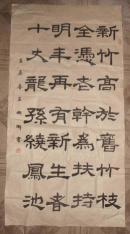 新竹高於舊竹枝
全憑老幹為扶持
明年再有新生者
十丈龍孫繞鳳池